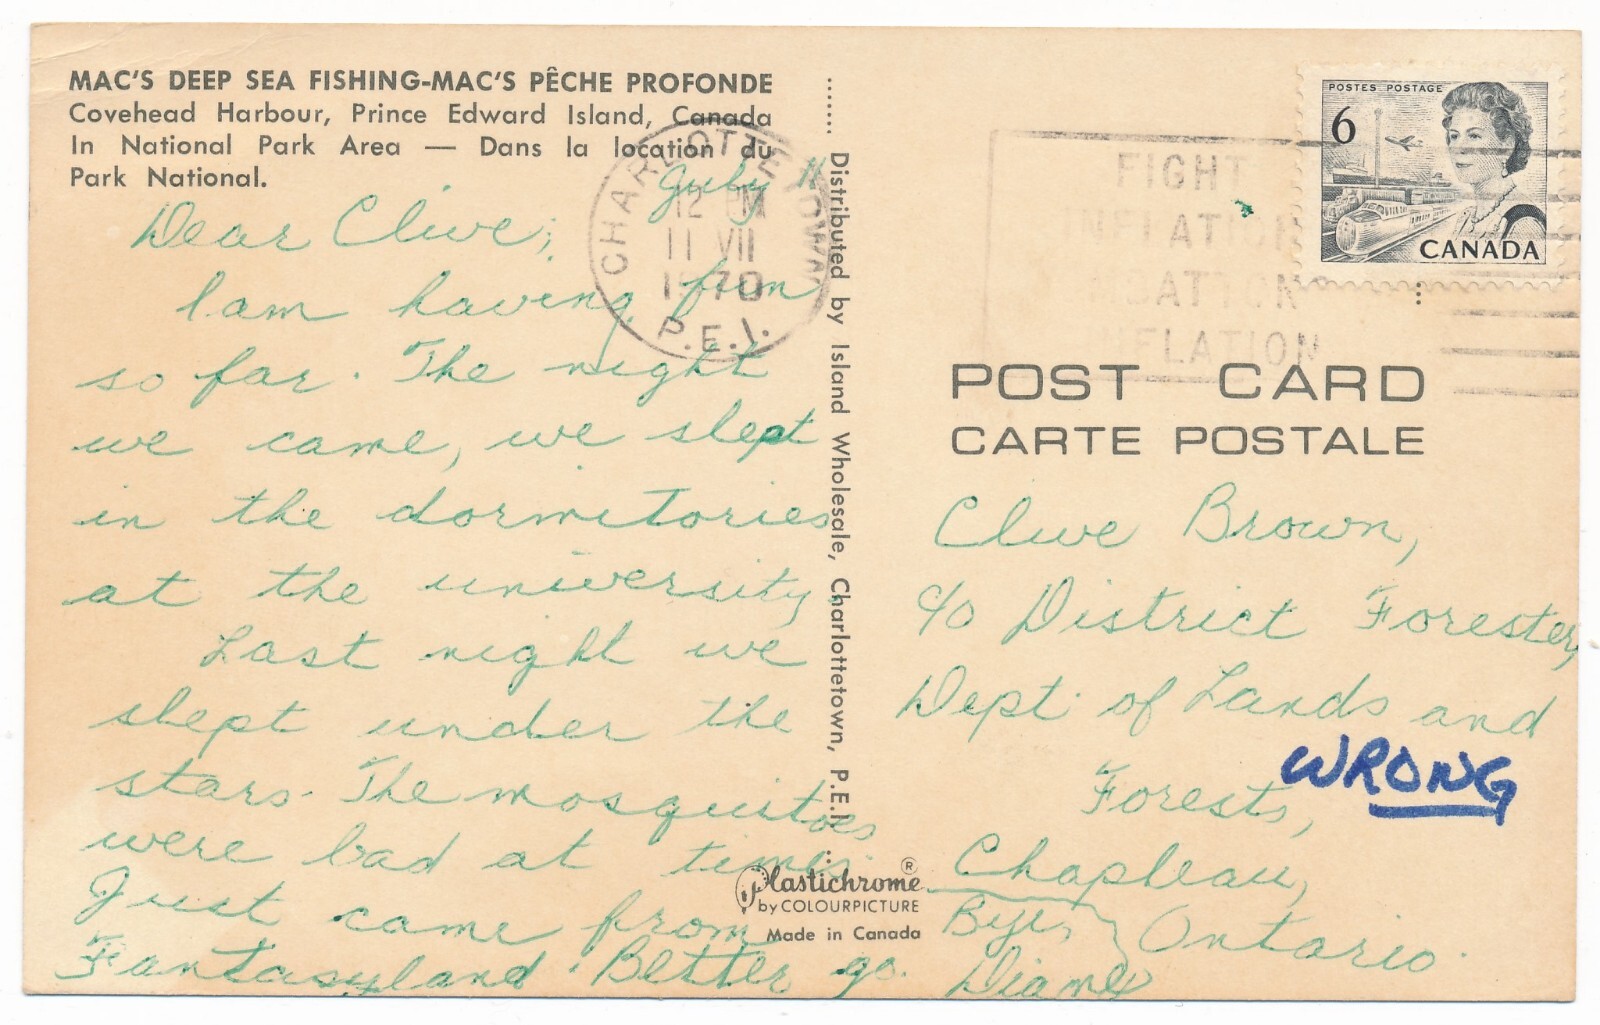 MAC'S DEEP SEA FISHING-MAC'S PÊCHE PROFONDE
Covehead Harbour, Prince Edward Island, Canada
In National Park Area — Dans la location du
Park National.
July 11
Dear Clive;
I am having fun
so far. The night
we came, we slept
in the dormitories
at the university.
Last night we
slept under the
stars. The mosquitoes
were bad at times.
Just came from
Fantasyland. Better go.
Bye,
Diane
CHARLOTTETOWN
12 PM
11 VII
1970
P.E.I.
Distributed by Island Wholesale, Charlottetown, P.E.I.
Plastichrome ®
by COLOURPICTURE
Made in Canada
FIGHT
INFLATION
INFLATION
POSTES POSTAGE
6
CANADA
POST CARD
CARTE POSTALE
Clive Brown,
c/o District Forester,
Dept. of Lands and
Forests,
WRONG
Chapleau,
Ontario.